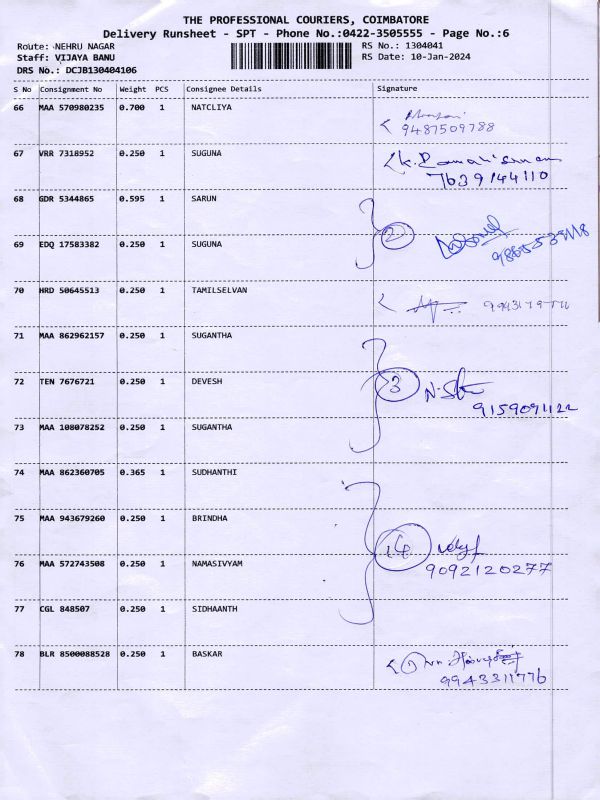 THE PROFESSIONAL COURIERS, COIMBATORE
Delivery Runsheet - SPT - Phone No.:0422-3505555 - Page No.:6
Route: NEHRU NAGAR RS No.: 1304041
Staff: VIJAYA BANU RS Date: 10-Jan-2024
DRS No.: DCJB130404106
S No Consignment No Weight PCS Consignee Details Signature
66 MAA 570980235 0.700 1 NATCLIYA
9487509788
67 VRR 7318952 0.250 1 SUGUNA
7639144110
68 GDR 5344865 0.595 1 SARUN
2
69 EDQ 17583382 0.250 1 SUGUNA
70 HRD 50645513 0.250 1 TAMILSELVAN
71 MAA 862962157 0.250 1 SUGANTHA
72 TEN 7676721 0.250 1 DEVESH 3
9159091122
73 MAA 108078252 0.250 1 SUGANTHA
74 MAA 862360705 0.365 1 SUDHANTHI
75 MAA 943679260 0.250 1 BRINDHA
76 MAA 572743508 0.250 1 NAMASIVYAM
9092120277
77 CGL 848507 0.250 1 SIDHAANTH
78 BLR 8500088528 0.250 1 BASKAR
9943311776